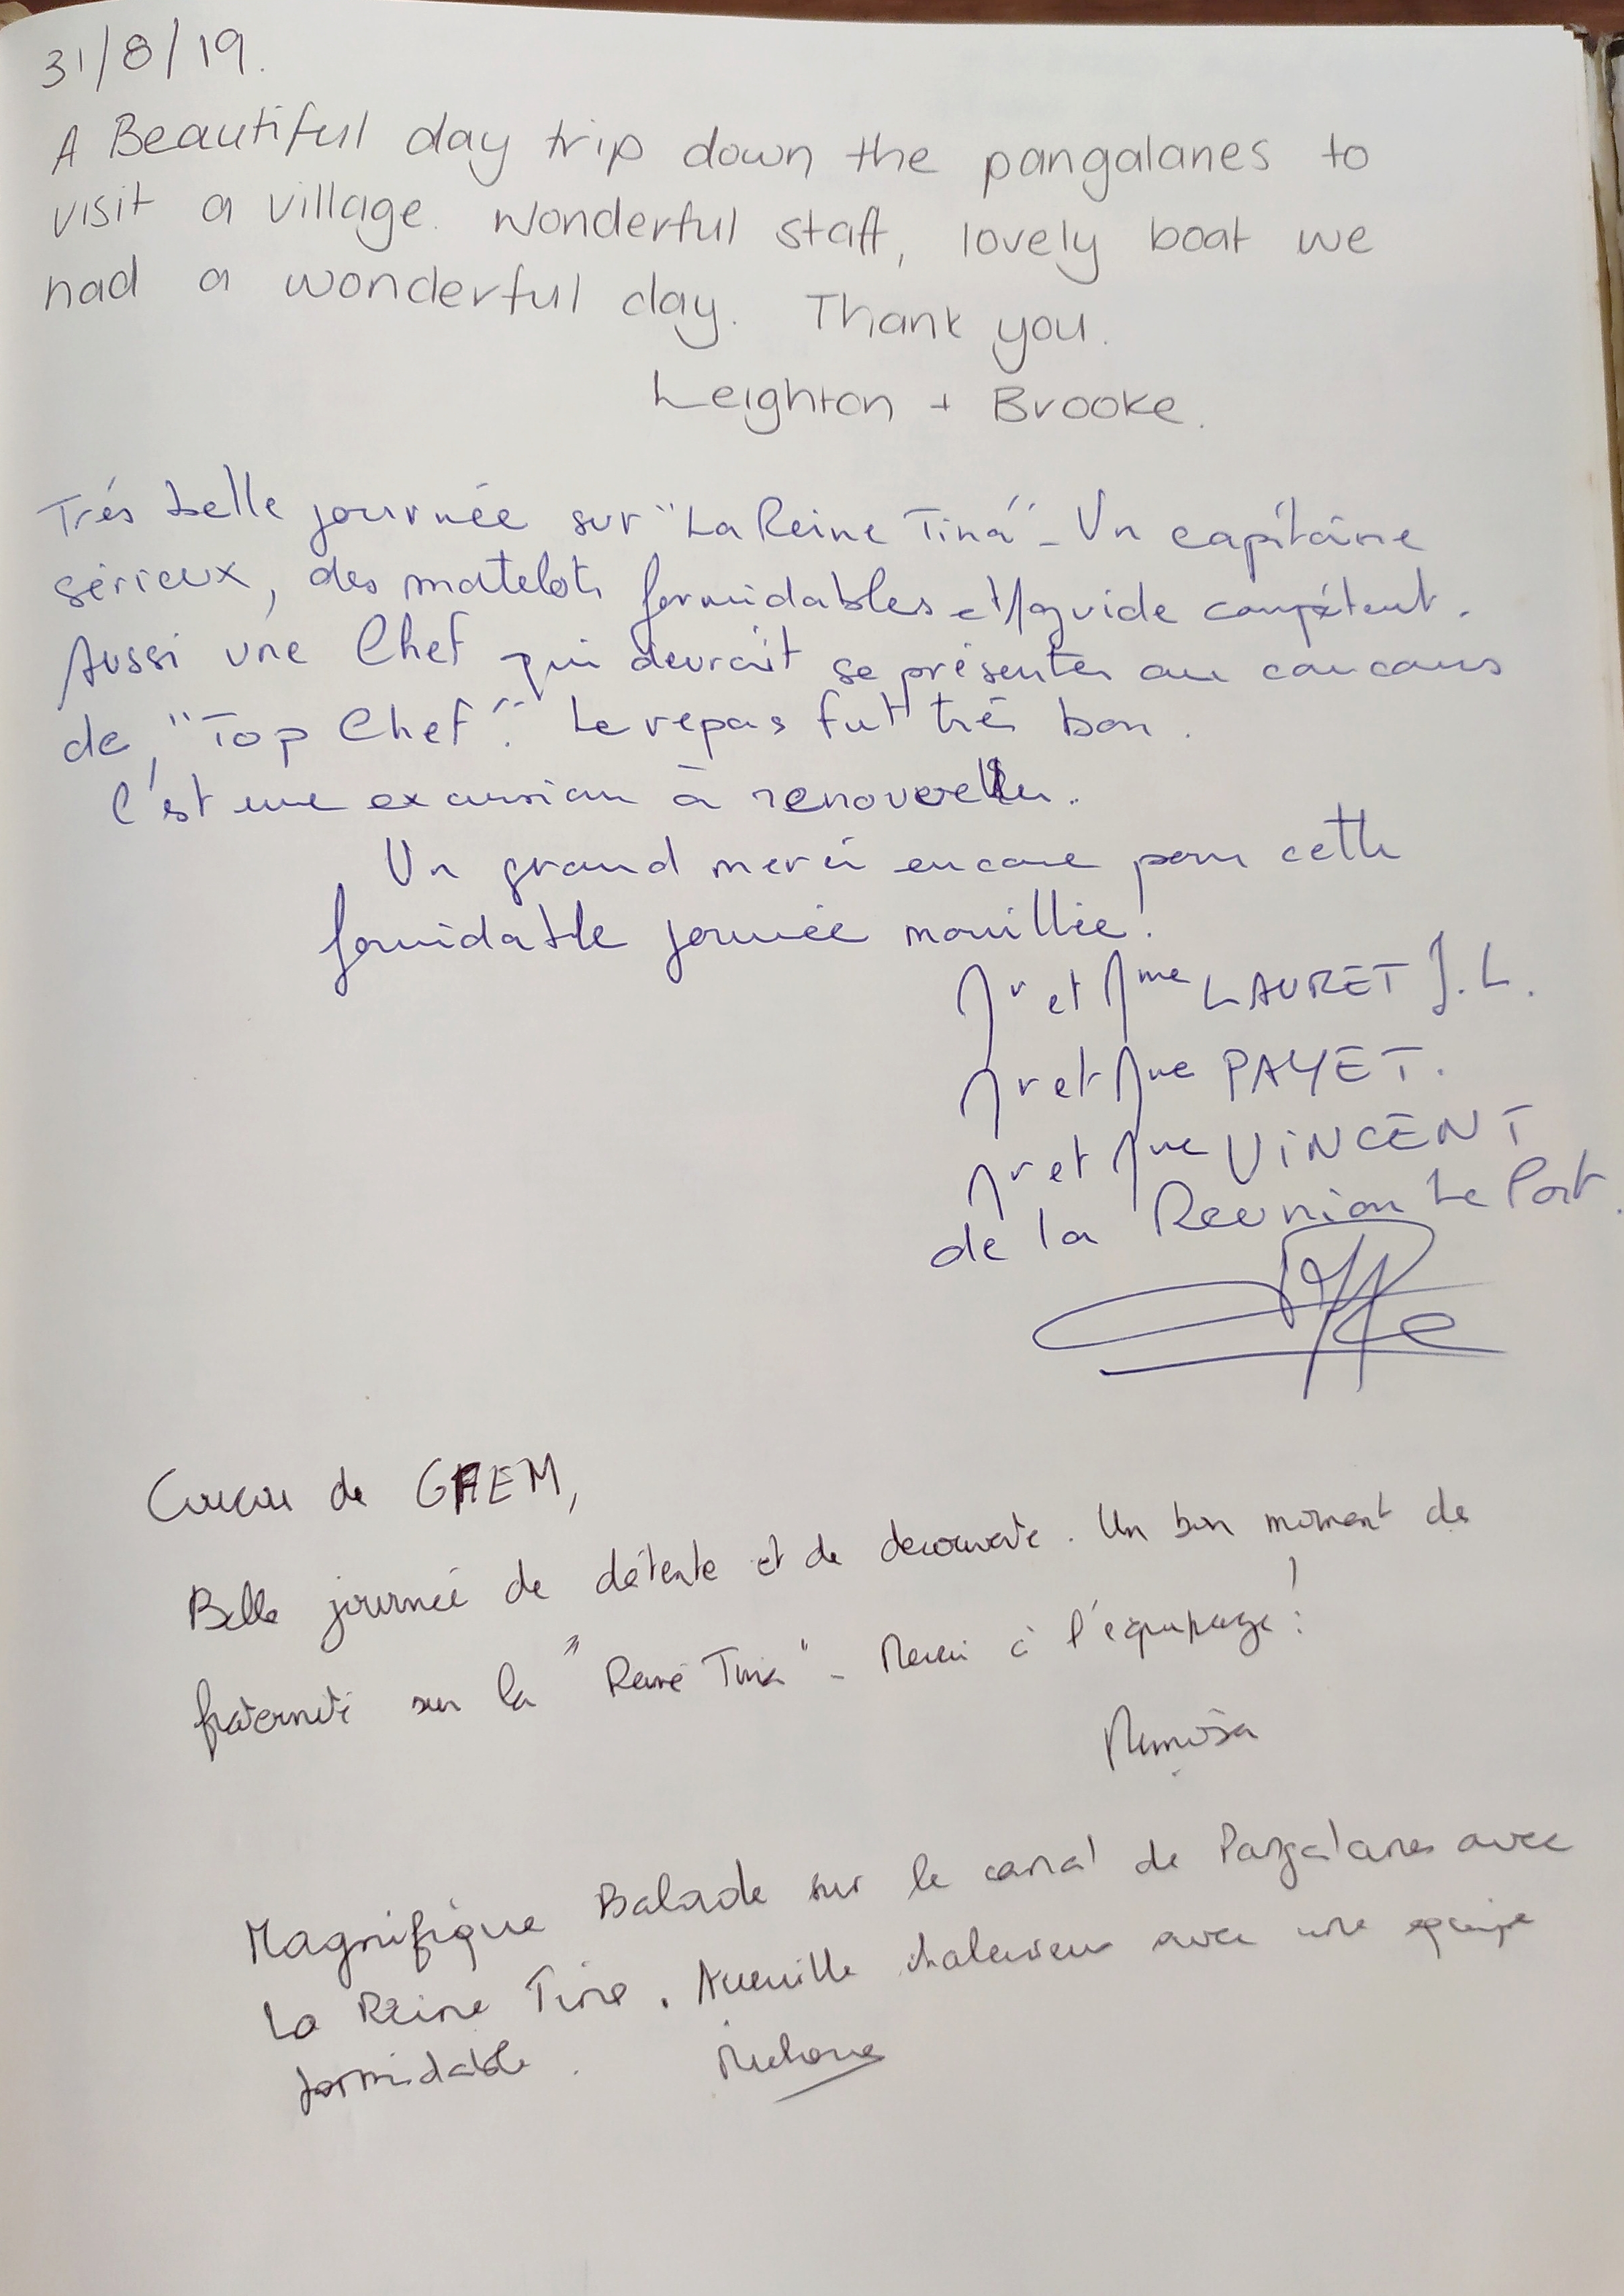 31/8/19.
A Beautiful day trip down the pangalanes to
visit a village. Wonderful staff, lovely boat we
had a wonderful day. Thank you.
Leighton + Brooke.
Trés belle journée sur "La Reine Tina" - Un capitaine
sérieux, des matelots formidables et guide compétent.
Aussi une Chef qui devrait se présenter au concours
de "Top Chef". Le repas fut très bon.
C'est une excursion à renouveller.
Un grand merci encore pour cette
formidable journée mouillée!
Mr et Mme LAURET J.L.
Mr et Mme PAYET.
Mr et Mme VINCENT
de la Reunion Le Port.
Coucou de
Belle journée de détente et de decouverte. Un bon moment de
fraternité sur la "Reine Tina" - Merci à l'équipage!
Mimosa
Magnifique Balade sur le canal de Pangalanes avec
La Reine Tina. chaleureux avec une equipe
formidable.